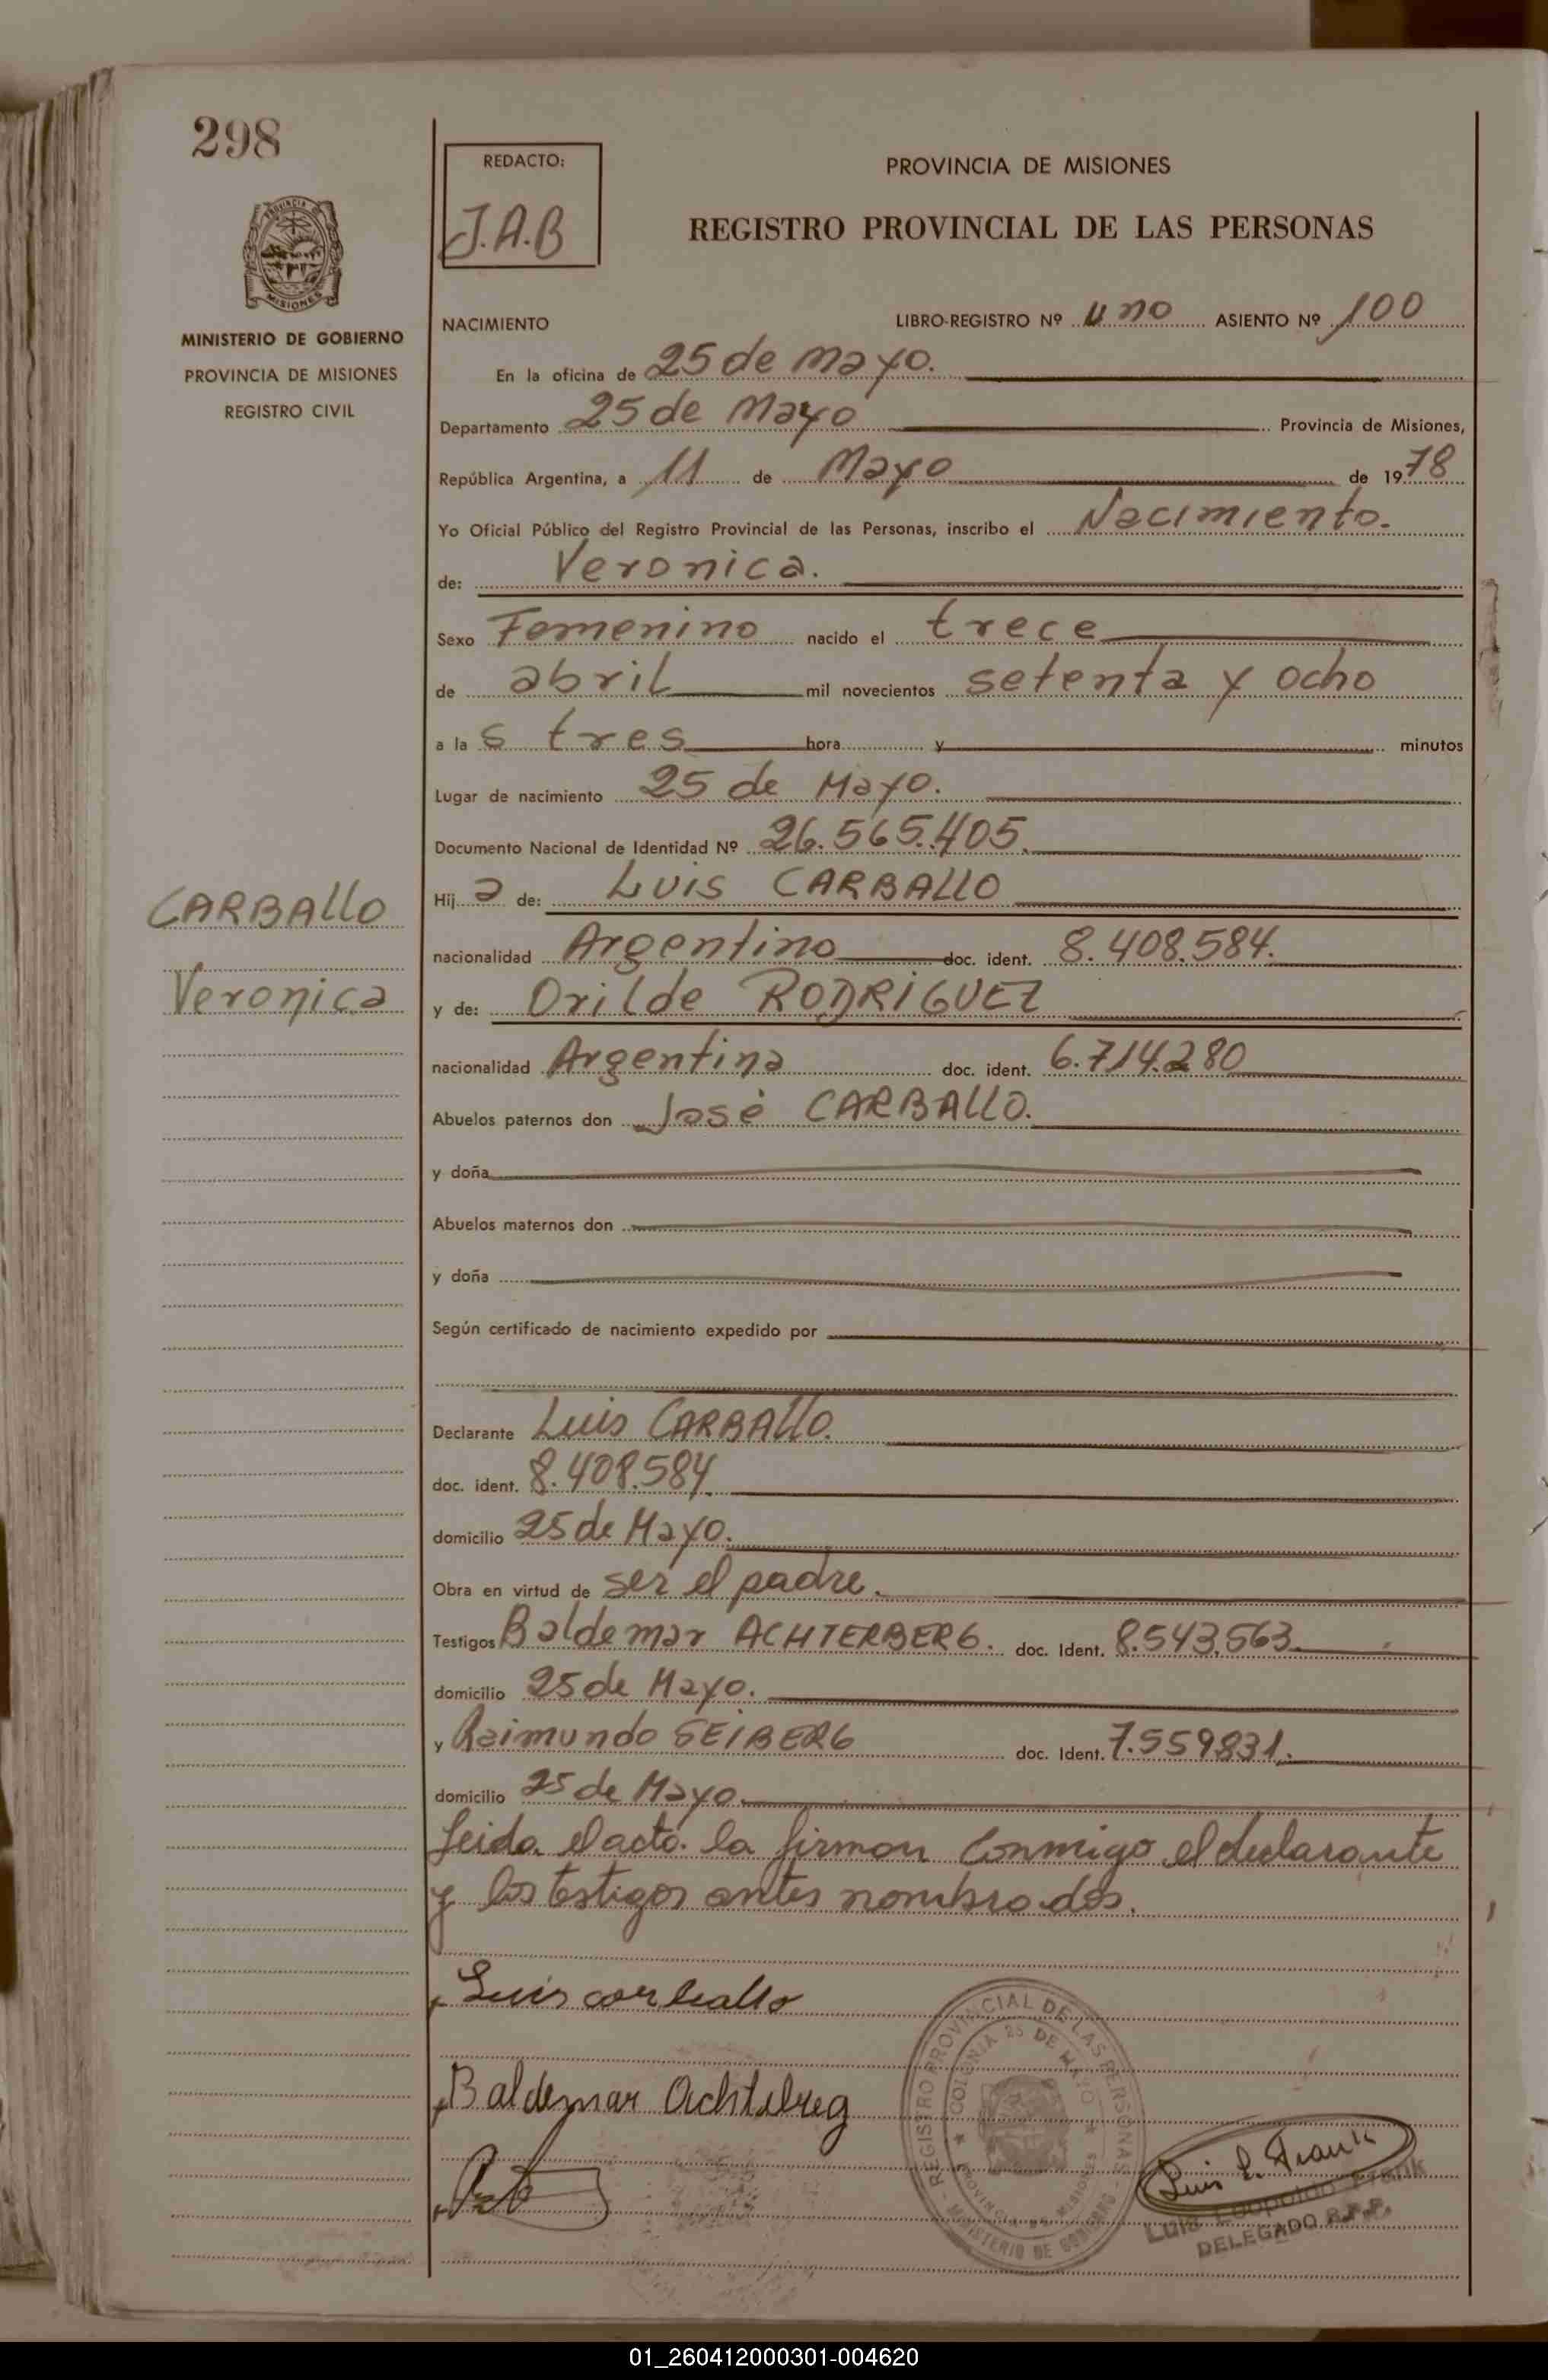 298
PROVINCIA DE
MISIONES
MINISTERIO DE GOBIERNO
PROVINCIA DE MISIONES
REGISTRO CIVIL
CARBALLO
Veronica
REDACTO:
J.A.B
PROVINCIA DE MISIONES
REGISTRO PROVINCIAL DE LAS PERSONAS
NACIMIENTO LIBRO-REGISTRO Nº uno ASIENTO Nº 100
En la oficina de 25 de Mayo.
Departamento 25 de Mayo Provincia de Misiones,
República Argentina, a 11 de Mayo de 1978
Yo Oficial Público del Registro Provincial de las Personas, inscribo el Nacimiento.
de: Veronica.
Sexo Femenino nacido el trece
de abril mil novecientos setenta y ocho
a la s tres hora y minutos
Lugar de nacimiento 25 de Mayo.
Documento Nacional de Identidad Nº 26.565.405.
Hij a de: LUIS CARBALLO
nacionalidad Argentino doc. ident. 8.408.584.
y de: Orilde RODRIGUEZ
nacionalidad Argentina doc. ident. 6.714.280
Abuelos paternos don José CARBALLO.
y doña
Abuelos maternos don
y doña
Según certificado de nacimiento expedido por
Declarante Luis CARBALLO.
doc. ident. 8.408.584
domicilio 25 de Mayo.
Obra en virtud de ser el padre.
Testigos Baldemar ACHTERBERG. doc. Ident. 8.543.563.
domicilio 25 de Mayo.
y Raimundo SEIBERG doc. Ident. 7.559831.
domicilio 25 de Mayo.
Leida el acta la firman conmigo el declarante
y los testigos antes nombrados.
Luis carballo
Baldemar Achtelreg
REGISTRO PROVINCIAL DE LAS PERSONAS - MINISTERIO DE GOBIERNO -
COLONIA 25 DE MAYO PROVINCIA DE MISIONES
Luis L. Frank
Luis Leopoldo Frank
DELEGADO R.P.P.
01_260412000301-004620